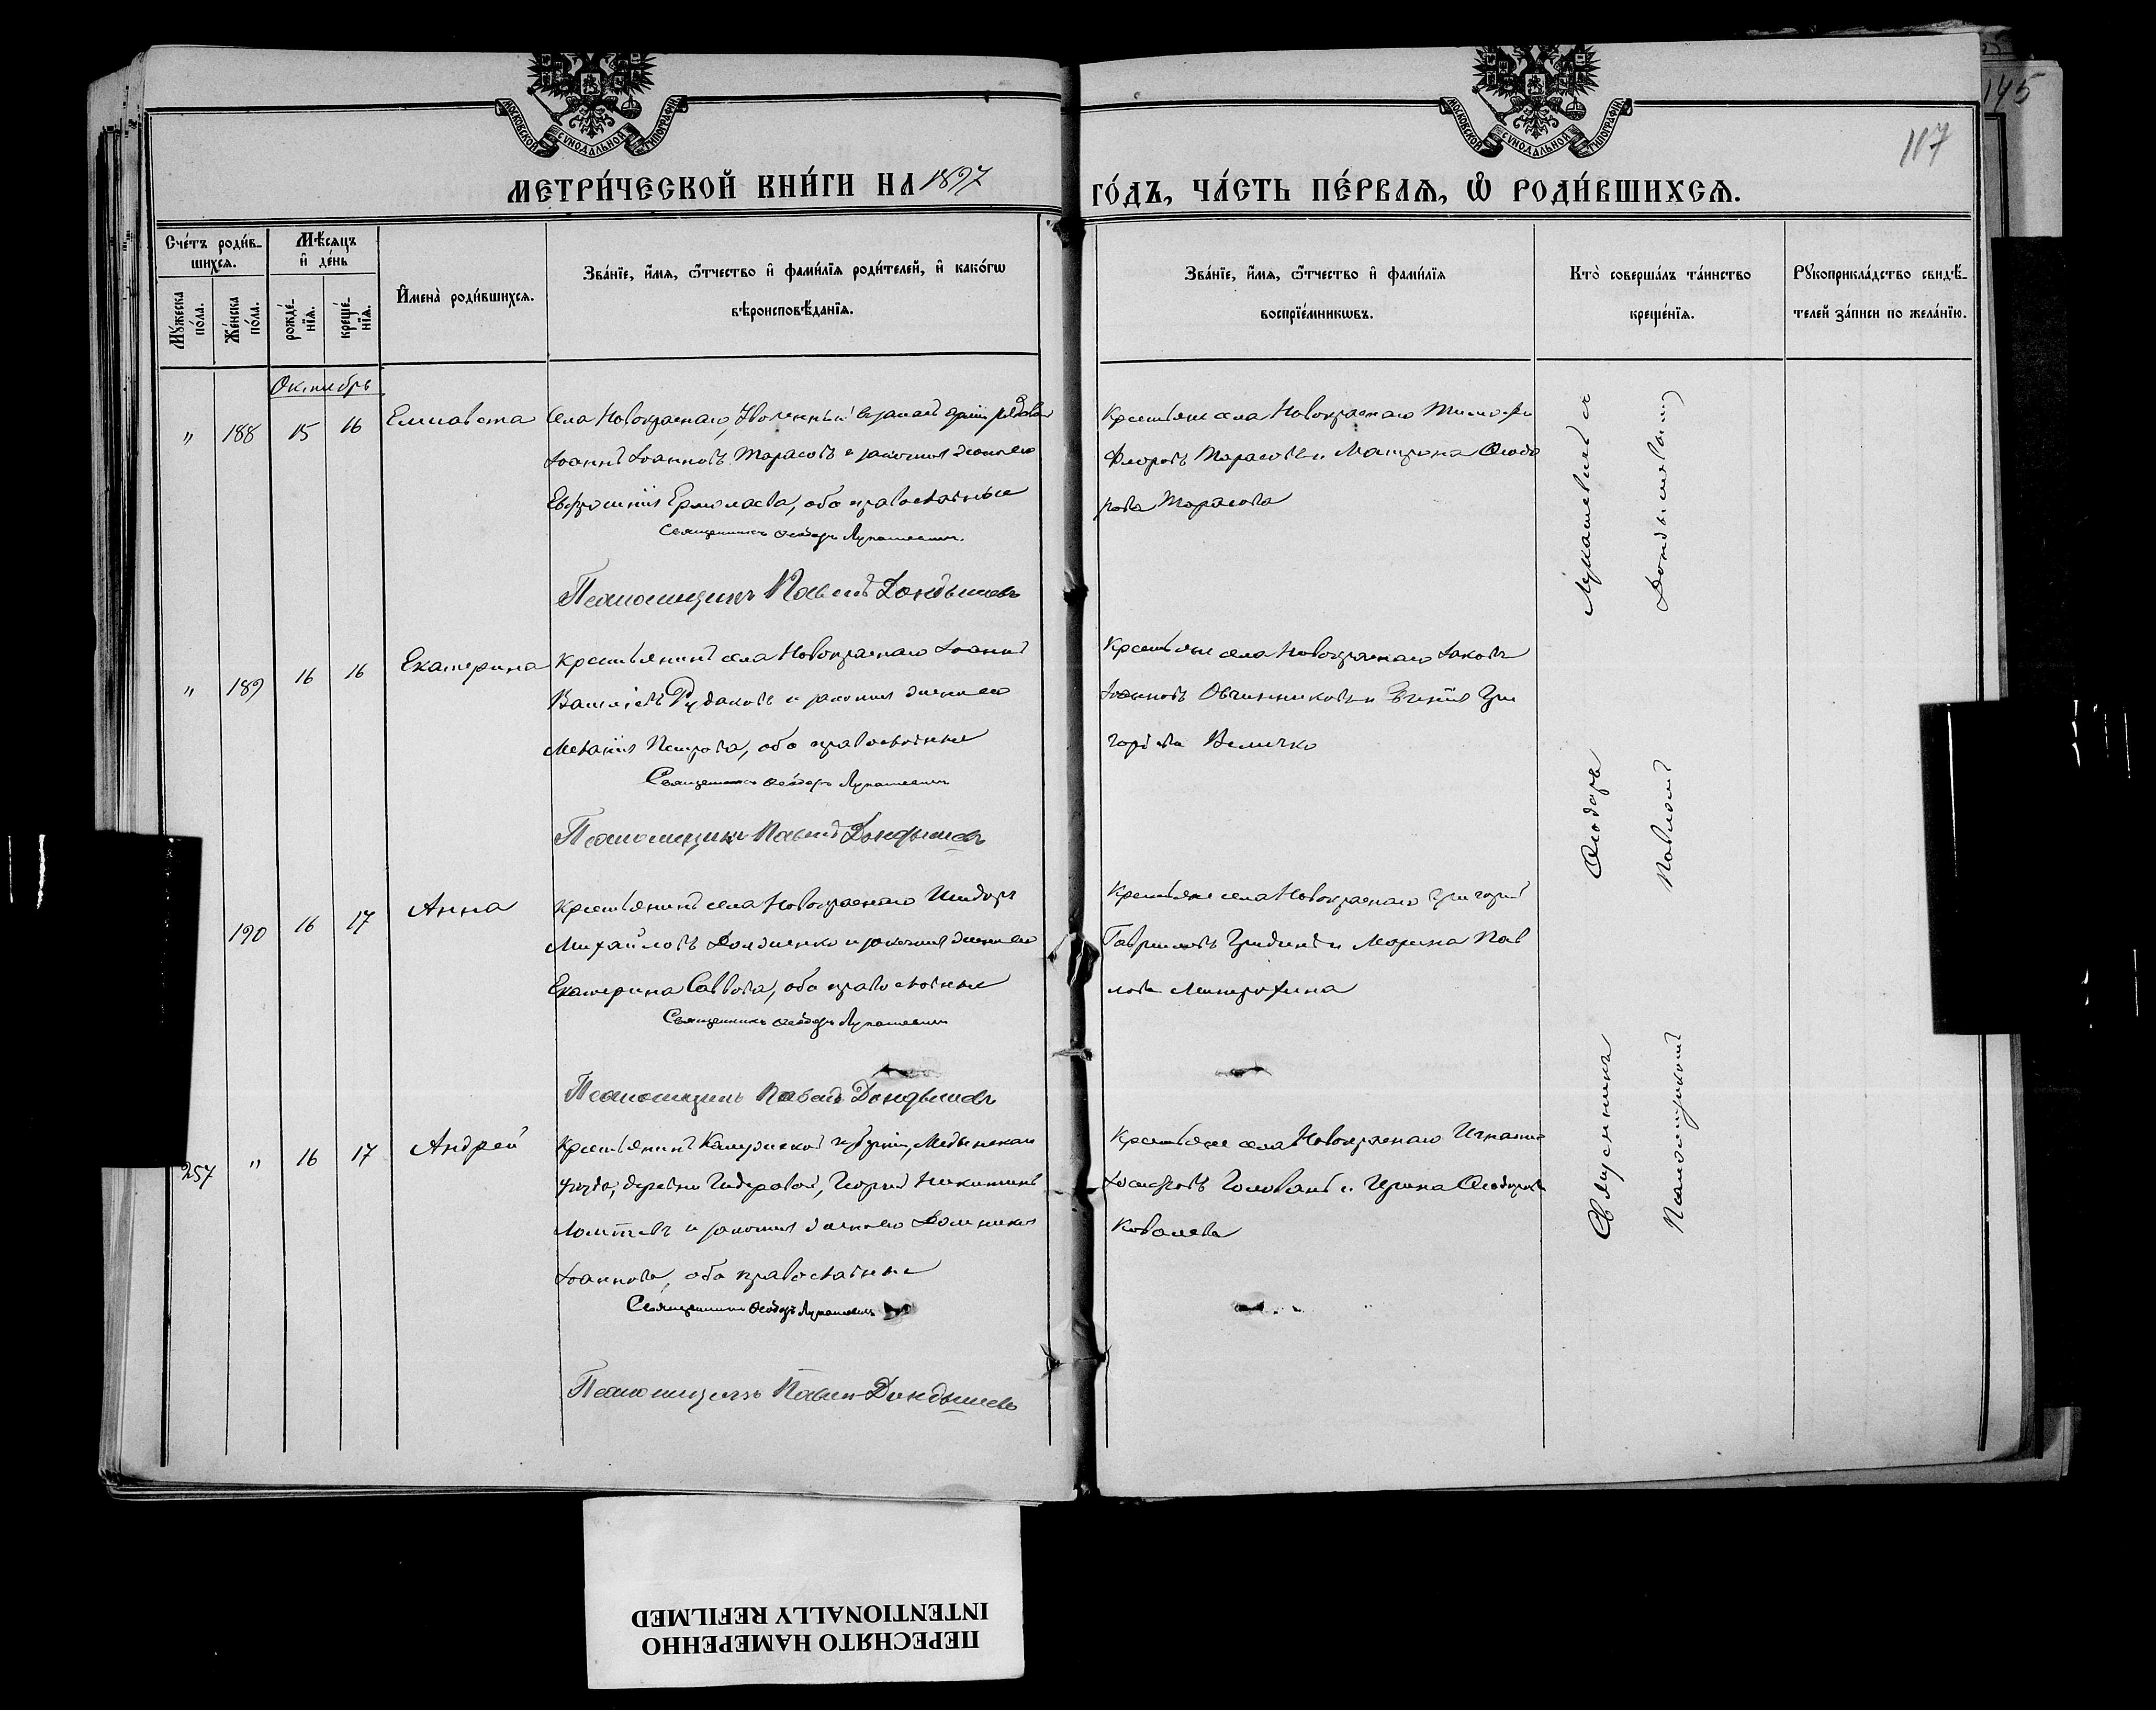 145
117
МОСКОВСКОЙ СѴНОДАЛЬНОЙ ТИПОГРАФІИ
МОСКОВСКОЙ СѴНОДАЛЬНОЙ ТИПОГРАФІИ
МЕТРИ́ЧЕСКОЙ КНИ́ГИ НА 1897
ГО́ДЪ, ЧА́СТЬ ПЕ́РВАѦ, Ѽ РОДИ́ВШИХСѦ.
Сче́тъ роди́в-
шихсѧ.
Мѣ́сѧцъ
и҆ де́нь
Мꙋ́жеска
по́ла.
Же́нска
по́ла.
рожде́-
нїѧ.
креще́-
нїѧ.
И҆мена̀ роди́вшихсѧ.
Зва́нїе, и҆́мѧ, ѻ҆́тчество и҆ фами́лїѧ роди́телей, и҆ како́гѡ
вѣроисповѣ́данїѧ.
Зва́нїе, и҆́мѧ, ѻ҆́тчество и҆ фами́лїѧ
воспрїе́мникѡвъ.
Кто̀ соверша́лъ та́инство
креще́нїѧ.
Рꙋкоприкла́дство свидѣ́-
телей за́писи по жела́нїю.
Октябрь
" 188 15 16 Елисавета
Села Новокраснаго, Уволенный въ запасъ арміи рядовой
Іоаннъ Іоанновъ Тарасовъ и законная жена его
Евфросинія Ермолаева, оба православные
Священникъ Ѳеодоръ Лукашевич.
Псаломщикъ Павелъ Дондышевъ
Крестьяне села Новокраснаго Тимофей
Флоровъ Тарасовъ и Матрона Ѳеодо
рова Тарасова
" 189 16 16 Екатерина
Крестьянинъ села Новокраснаго Іоаннъ
Василіевъ Рудаковъ и законная жена его
Меланія Петрова, оба православные
Священникъ Ѳеодоръ Лукашевич
Псаломщикъ Павелъ Дондышевъ
Крестьяне села Новокраснаго Іаковъ
Іоанновъ Овчинниковъ и Евгенія Гри
горіева Величко
190 16 17 Анна
Крестьянинъ села Новокраснаго Исидоръ
Михайловъ и законная жена его
Екатерина Саввова, оба православные
Священникъ Ѳеодоръ Лукашевич
Псаломщикъ Павелъ Дондышевъ
Крестьяне села Новокраснаго Григорій
Гавриловъ Гридинъ и Марина Пав
лова Митрохина
257 " 16 17 Андрей
Крестьянинъ Калужской губерніи, Медынскаго
уѣзда, деревни Георгій Никитинъ
и законная жена его Домникія
Іоаннова, оба православные
Священникъ Ѳеодоръ Лукашевич
Псаломщикъ Павелъ Дондышевъ
Крестьяне села Новокраснаго Игнатій
Іосифовъ Голованъ и Ирина Ѳеодорова
Ковалева
Священника Ѳеодоръ Лукашевичъ съ
Псаломщикомъ Павломъ Дондышевымъ
ПЕРЕСНЯТО НАМЕРЕННО
INTENTIONALLY REFILMED